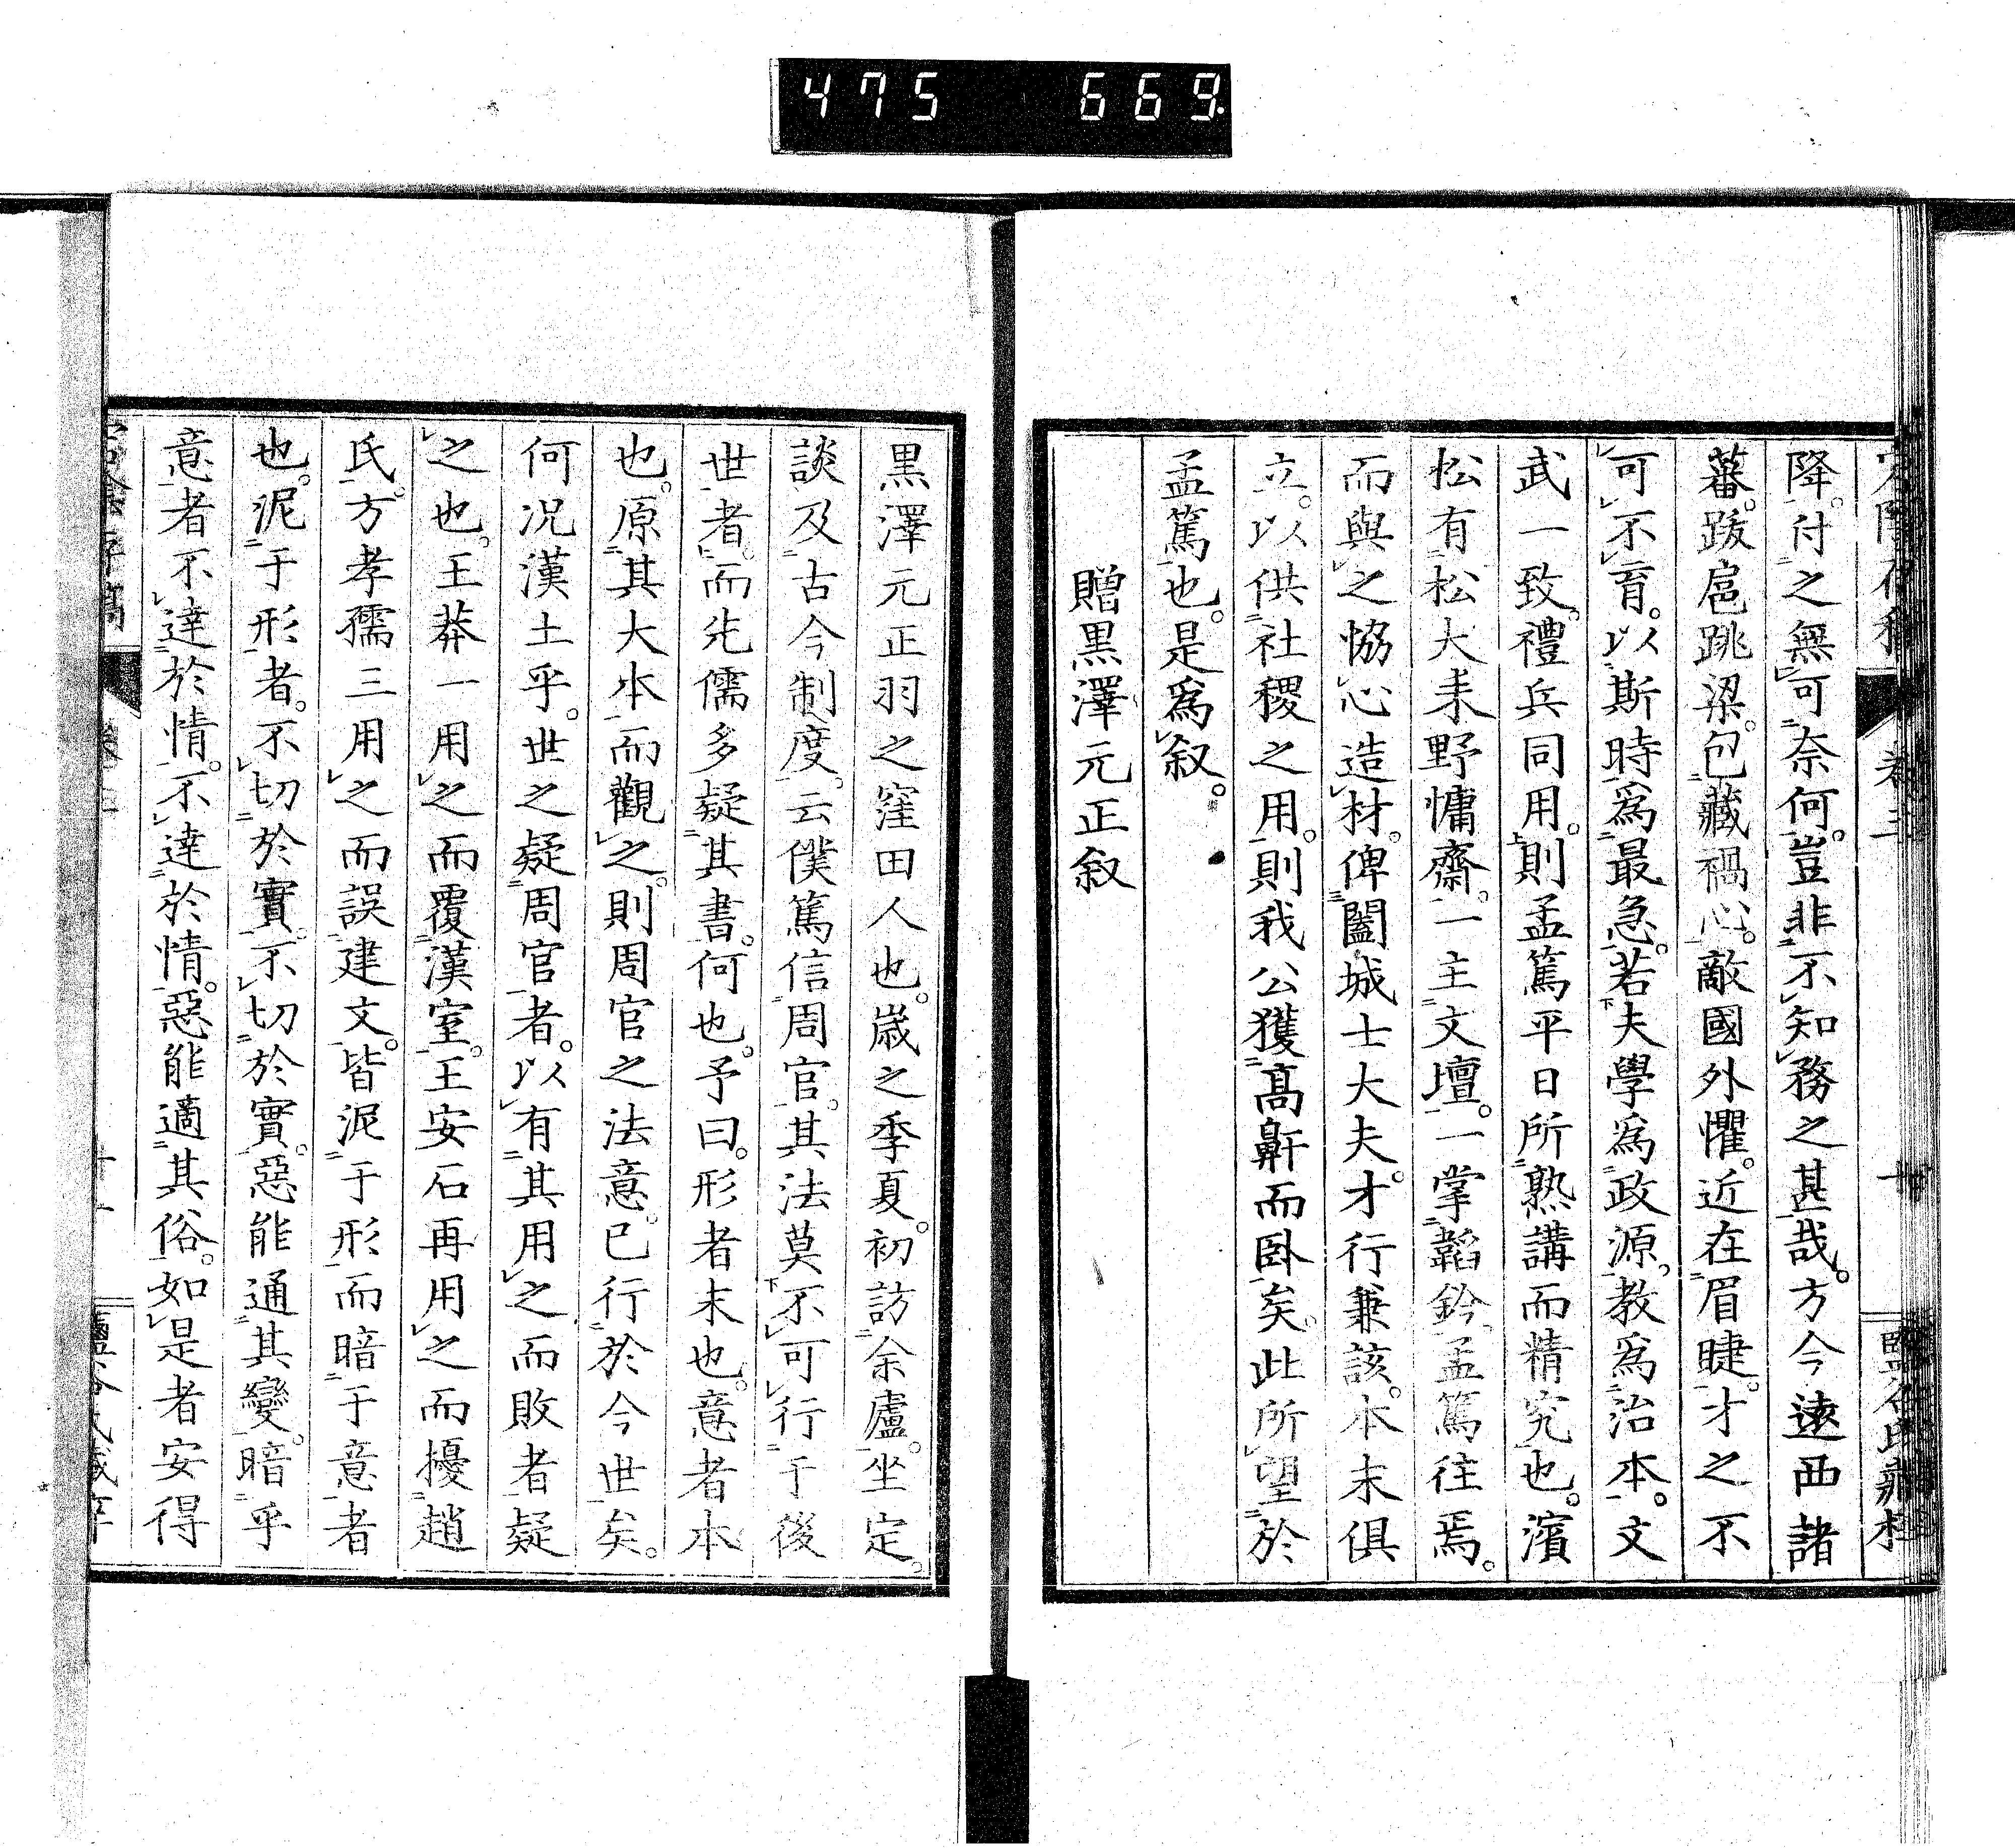 475 669.
降。付之無可奈何。豈非不知務之甚哉。方今遠西諸
蕃。跋扈跳梁。包藏禍心。敵國外懼。近在眉睫。才之不
可不育。以斯時爲最急。若夫學爲政源。教爲治本。文
武一致。禮兵同用。則孟篤平日所熟講而精究也。濱
松有松大耒野慵齋。一主文壇。一掌韜鈐。孟篤往焉。
而與之恊心造材。俾闔城士大夫。才行兼該。本末俱
立。以供社稷之用。則我公獲高鼾而臥矣。此所望於
孟篤也。是爲叙。
贈黒澤元正叙
黒澤元正羽之窪田人也。歲之季夏。初訪余廬。坐定。
談及古今制度。云僕篤信周官。其法莫不可行于後
世者。而先儒多疑其書。何也。予曰。形者末也。意者本
也。原其大本而觀之。則周官之法意。已行於今世矣。
何況漢土乎。世之疑周官者。以有其用之而敗者疑
之也。王莽一用之而覆漢室。王安石再用之而擾趙
氏。方孝孺三用之而誤建文。皆泥于形而暗于意者
也。泥于形者。不切於實。不切於實。惡能通其變。暗乎
意者不達於情。不達於情。惡能適其俗。如是者安得